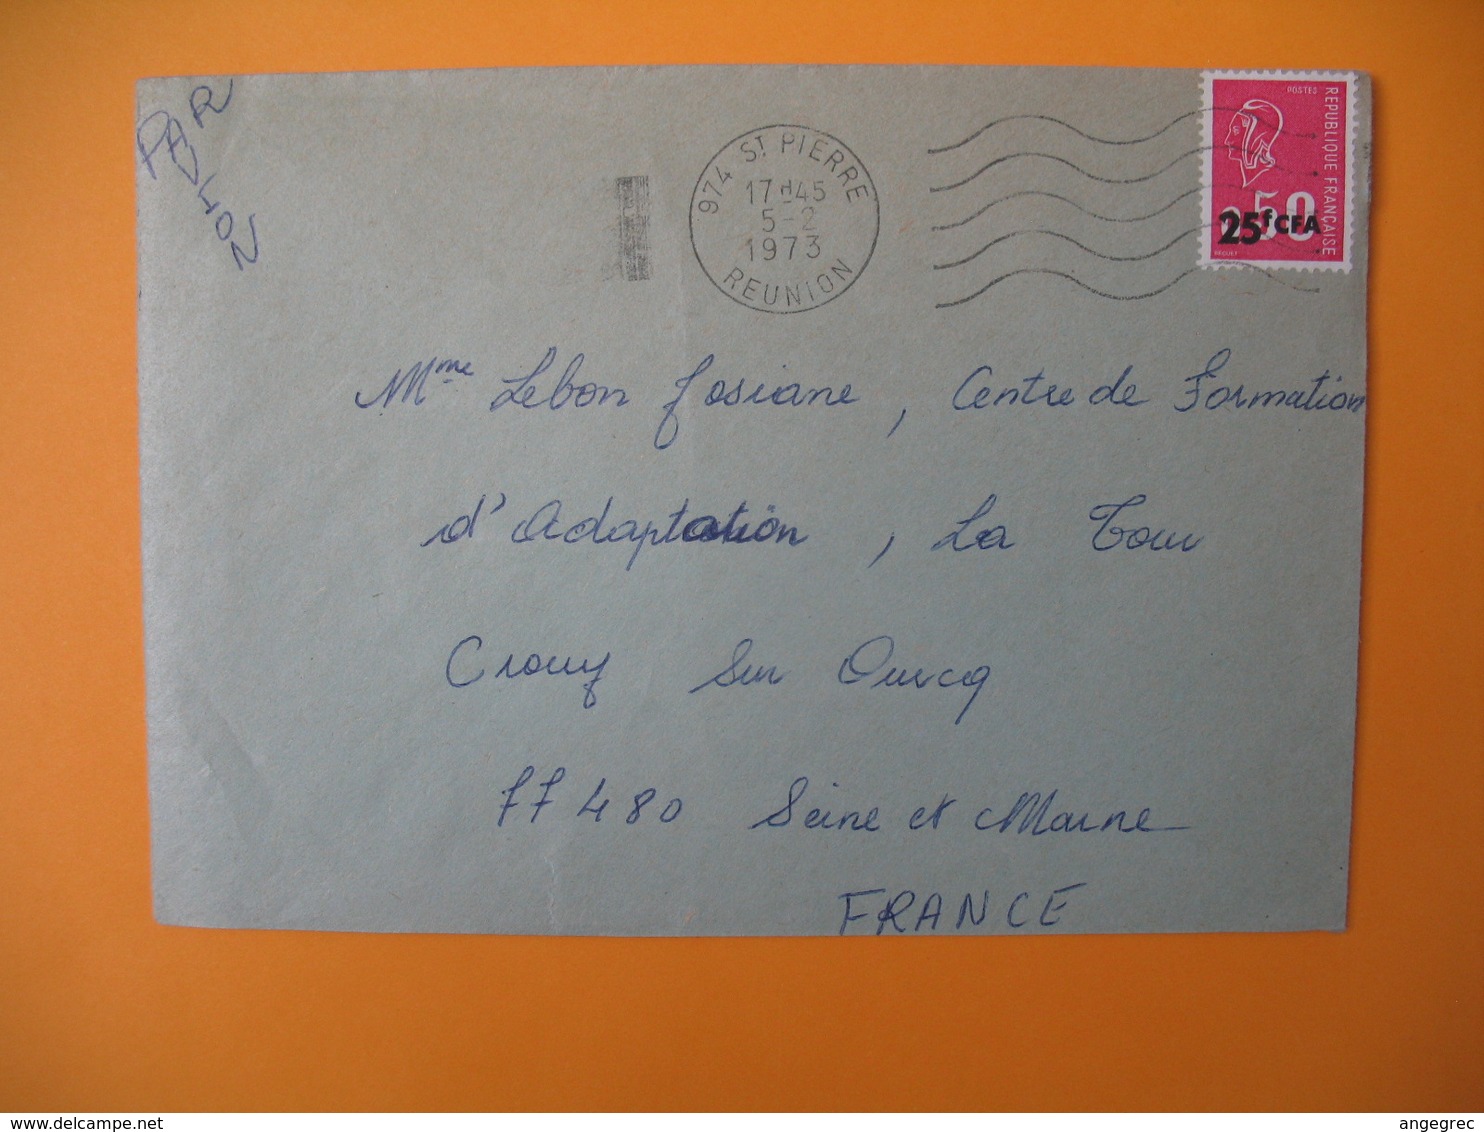 PAR
AVION
974 ST PIERRE
17H45
5-2
1973
REUNION
POSTES
REPUBLIQUE FRANÇAISE
0,50
25fCFA
BEQUET
Mme Lebon Josiane, Centre de Formation
d'Adaptation, La Tour
Crouy sur Ourcq
77480 Seine et Marne
FRANCE
delcampe.net
angegrec